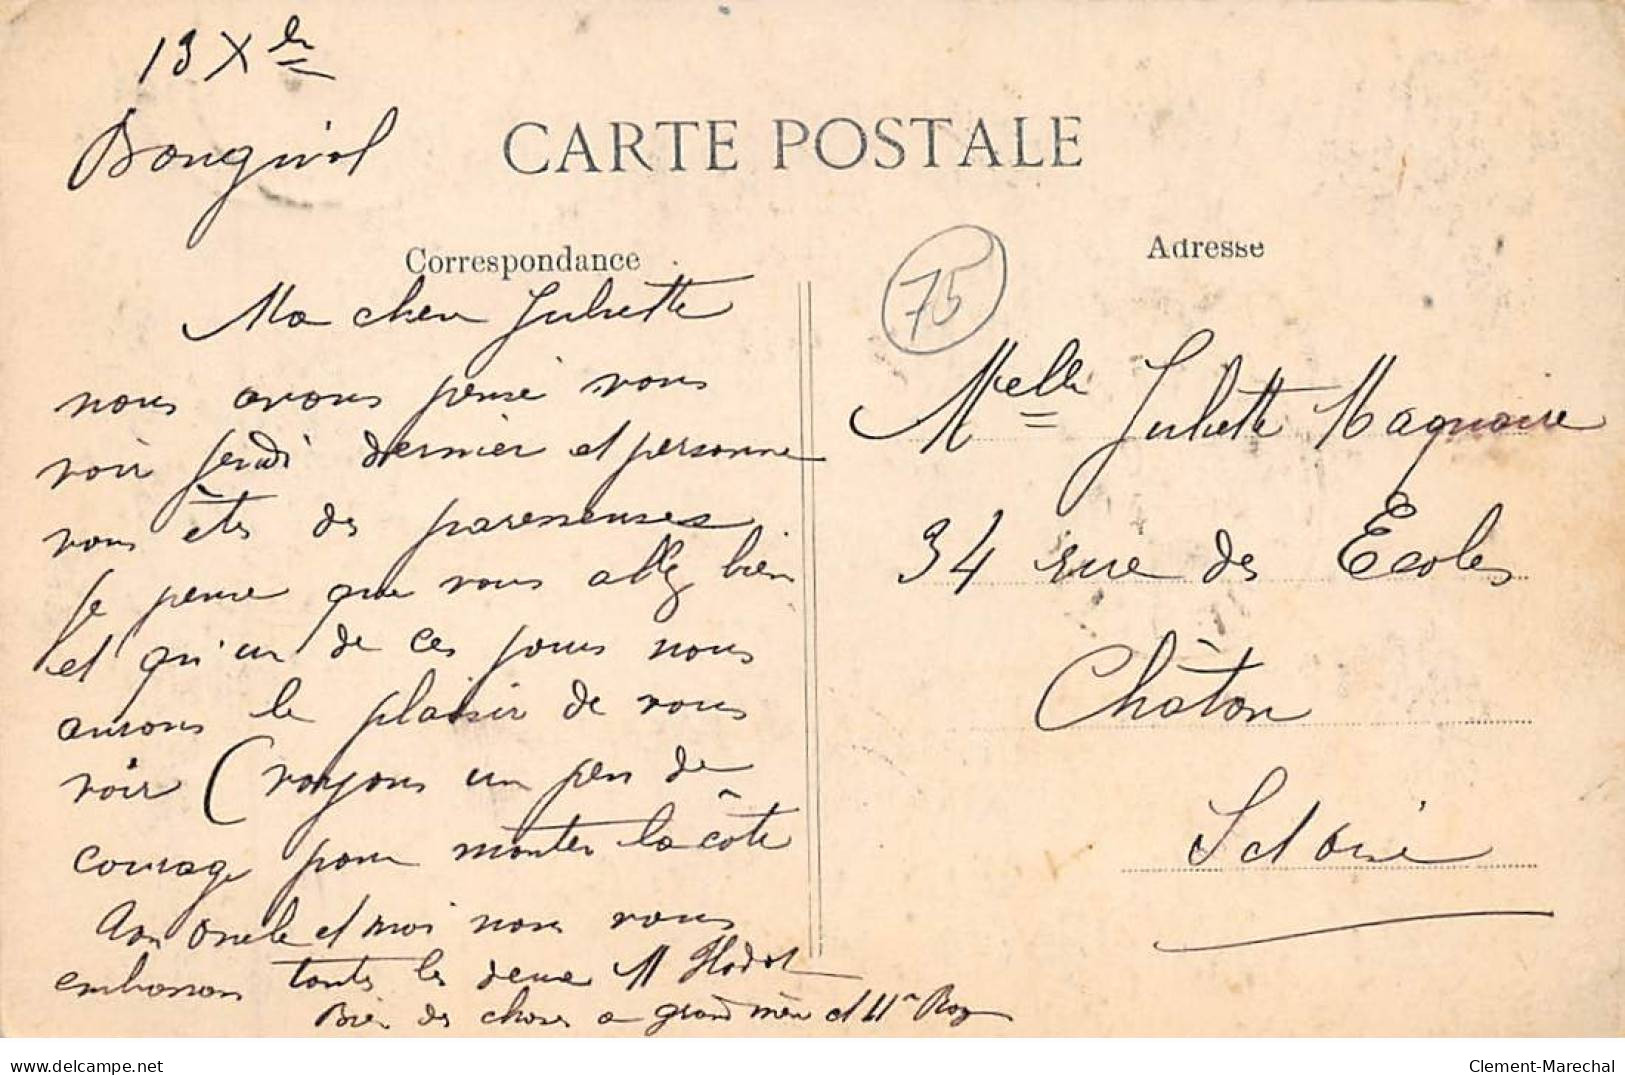 13 Xbre
Bougival
CARTE POSTALE
Correspondance
Ma chere Juliette
nous avons pensé vous
voir jeudi dernier et personne
vous êtes des paresseuses
Je pense que vous allez bien
et qu'un de ces jours nous
aurons le plaisir de vous
voir (voyons un peu de
courage pour monter la côte
ton oncle et moi nous vous
embrassons toutes les deux M Hodot
Bien des choses a grand mère et Mme Roy
75
Adresse
Melle Juliette Magnoire
34 rue des Ecoles
Châton
S et Oise
delcampe.net
Clement-Marechal